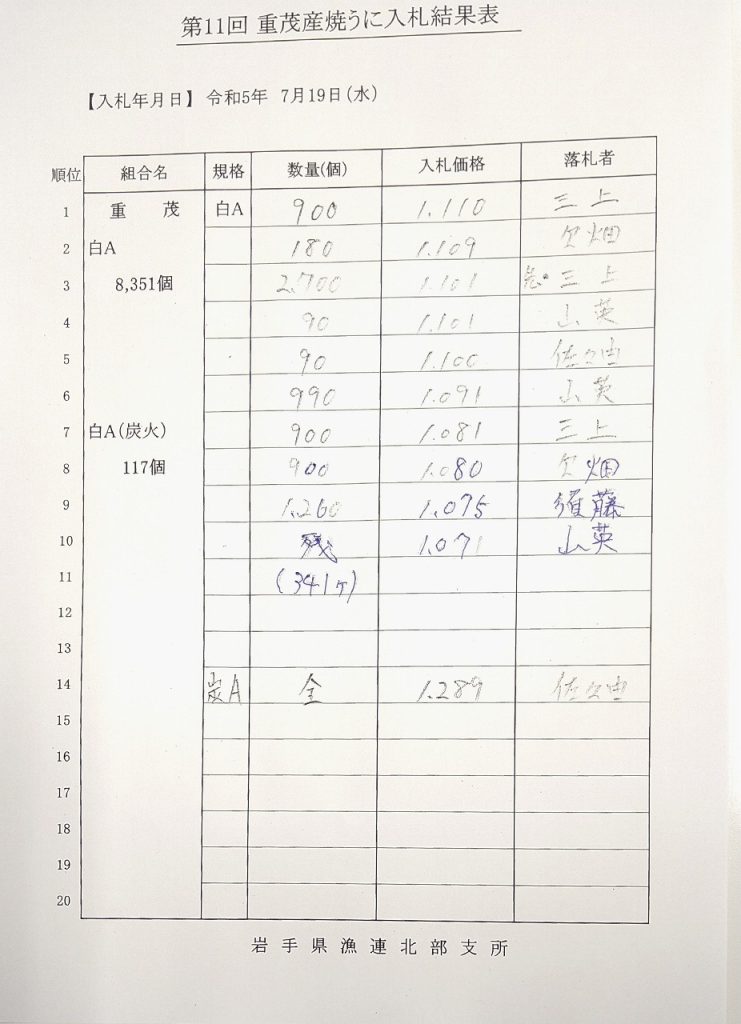 第11回 重茂産焼うに入札結果表
【入札年月日】 令和5年 7月19日(水)
順位 組合名 規格 数量(個) 入札価格 落札者
1 重 茂 白A 900 1.110 三上
2 白A 180 1.109 欠畑
3 8,351個 2.700 1.101 三上
4 90 1.101 山英
5 90 1.100 佐々由
6 990 1.091 山英
7 白A(炭火) 900 1.081 三上
8 117個 900 1.080 欠畑
9 1.260 1.075 須藤
10 残 1.071 山英
11 (341ヶ)
12
13
14 炭A 全 1.289 佐々由
15
16
17
18
19
20
岩手県漁連北部支所